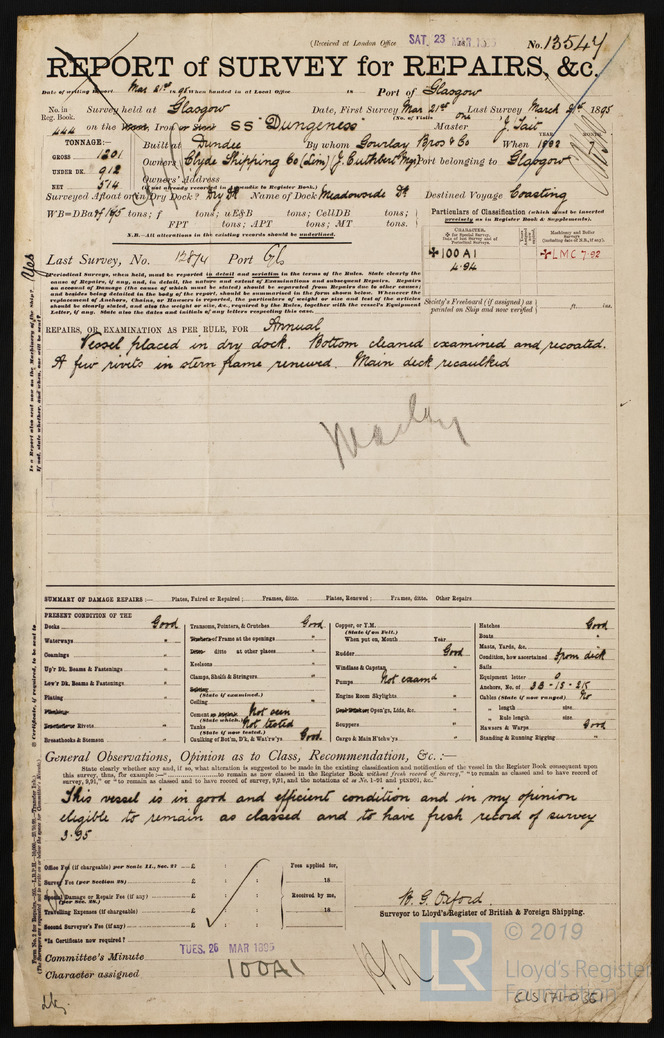 (Received at London Office SAT. 23 MAR. 1895
No. 13547
REPORT of SURVEY for REPAIRS, &c.
Date of writing Report Mar 21st 1895 When handed in at Local Office 18 Port of Glasgow
No. in Reg. Book. Survey held at Glasgow Date, First Survey Mar 21st Last Survey March 21st 1895
(No. of Visits one )
444 on the Wood, Iron or Steel SS "Dungeness" Master J. Tait
TONNAGE:— Built at Dundee By whom Gourlay Bros & Co When 1882 7
YEAR. MONTH.
GROSS 1201 Owners Clyde Shipping Co (Lim) (J. Cuthbert Mgr) Port belonging to Glasgow
UNDER DK. 912 Owners' Address
NET 514 (if not already recorded in Appendix to Register Book.)
Surveyed Afloat or in Dry Dock? Dry Dk Name of Dock Meadowside Dk Destined Voyage Coasting
tons; f tons; uE&B tons; CellDB tons;
FPT tons; APT tons; MT tons.
N.B.—All alterations in the existing records should be underlined.
Particulars of Classification (which must be inserted precisely as in Register Book & Supplements).
CHARACTER.
✠ for Special Survey.
Date of last Survey and of Periodical Surveys.
Machinery and Boiler Surveys
✠100A1
4.94
✠LMC 7.92
Last Survey, No. 12874 Port Gls
Periodical Surveys, when held, must be reported in detail and seriatim in the terms of the Rules. State clearly the
cause of Repairs, if any, and, in detail, the nature and extent of Examinations and subsequent Repairs. Repairs
on account of Damage (the cause of which must be stated) should be separated from Repairs due to other causes;
and besides being detailed in the body of the report, should be summarised in the form shown below. Whenever the
replacement of Anchors, Chains, or Hawsers is reported, the particulars of weight or size and test of the articles
should be clearly stated, and also the weight or size, &c., required by the Rules, together with the vessel's Equipment
Letter, if any. State also the dates and initials of any letters respecting this case.
Society's Freeboard (if assigned) as painted on Ship and now verified ft. ins.
REPAIRS, OR EXAMINATION AS PER RULE, FOR Annual
Vessel placed in dry dock. Bottom cleaned examined and recoated.
A few rivets in stern frame renewed. Main deck recaulked
Is a Report also sent now on the Machinery of the Ship? Yes
If not, state whether, and when, one will be sent?
SUMMARY OF DAMAGE REPAIRS :— Plates, Faired or Repaired ; Frames, ditto. Plates, Renewed ; Frames, ditto. Other Repairs
PRESENT CONDITION OF THE
Decks Good
Waterways "
Coamings "
Up'r Dk. Beams & Fastenings "
Low'r Dk. Beams & Fastenings "
Plating "
Planking
Treenails or Rivets "
Breasthooks & Stemson "
Transoms, Pointers, & Crutches Good
Timbers or Frame at the openings "
Ditto ditto at other places "
Keelsons "
Clamps, Shelfs & Stringers "
Salting
(State if examined.)
Ceiling
Cement or Asphalt (State which) Not seen
Tanks (State if now tested.) Not tested
Caulking of Bot'm, D'k, & Wat'rw'ys Good
Copper, or Y.M.
(State if on Felt.)
When put on, Month Year
Rudder Good
Windlass & Capstan "
Pumps Not examd
Engine Room Skylights "
Coal Bunker Open'gs, Lids, &c. "
Scuppers "
Cargo & Main H'tchw'ys "
Hatches Good
Boats "
Masts, Yards, &c. "
Condition, how ascertained From deck
Sails
Equipment letter O
Anchors, No. of 3B-1S-2K
Cables (State if now ranged) No
" length size
" Rule length size
Hawsers & Warps Good
Standing & Running Rigging "
General Observations, Opinion as to Class, Recommendation, &c. :—
State clearly whether any and, if so, what alteration is suggested to be made in the existing classification and notification of the vessel in the Register Book consequent upon
this survey, thus, for example :—" to remain as now classed in the Register Book without fresh record of Survey," "to remain as classed and to have record of
survey, 9,91," or "to remain as classed and to have record of survey, 9,91, and the notations of ss No. 1-91 and ptND91, &c."
This vessel is in good and efficient condition and in my opinion
eligible to remain as classed and to have fresh record of survey
3.95
Office Fee (if chargeable) per Scale II., Sec. 2? £ : :
Survey Fee (per Section 28) £ : :
Special Damage or Repair Fee (if any) (per Sec. 28.) £ : :
Travelling Expenses (if chargeable) £ : :
Second Surveyor's Fee (if any) £ : :
Fees applied for,
18
Received by me,
18
W. G. Oxford
Surveyor to Lloyd's Register of British & Foreign Shipping.
*Is Certificate now required ?
Committee's Minute TUES. 26 MAR 1895
Character assigned 100A1
LR
© 2019
Lloyd's Register
Foundation
GLS171-0361